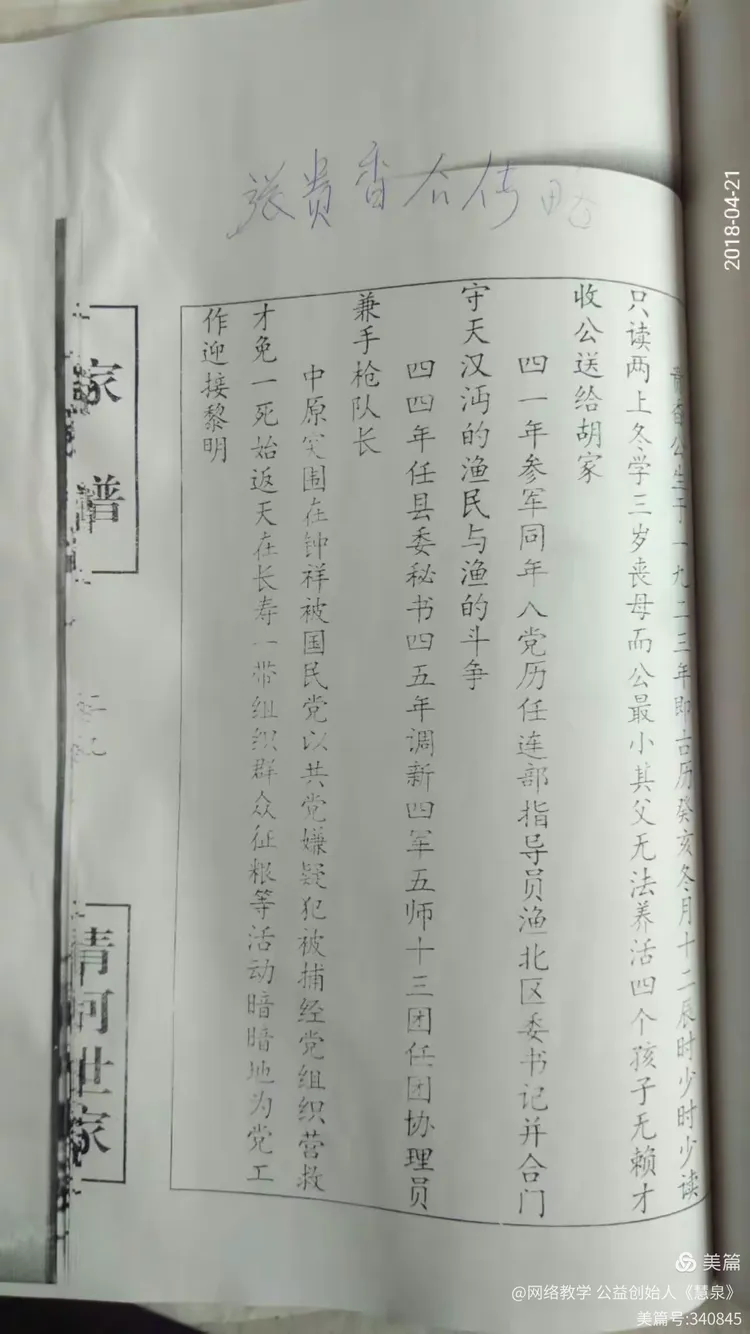 张贵香公传略
贵香公生于一九二三年即古历癸亥冬月十二辰时少时少读
只读两上冬学三岁丧母而公最小其父无法养活四个孩子无赖才
收公送给胡家
四一年参军同年入党历任连部指导员渔北区委书记并合门
守天汉沔的渔民与渔的斗争
四四年任县委秘书四五年调新四军五师十三团任团协理员
兼手枪队长
中原突围在钟祥被国民党以共党嫌疑犯被捕经党组织营救
才免一死始返天在长寿一带组织群众征粮等活动暗暗地为党工
作迎接黎明
家谱
清河世家
2018-04-21
美篇
@网络教学 公益创始人《慧泉》
美篇号:340845